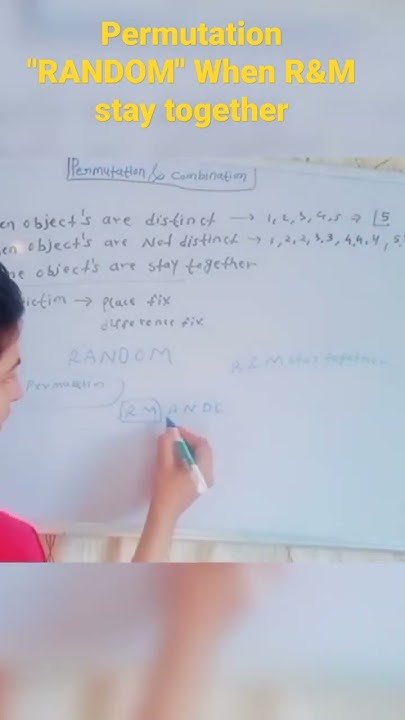 Permutation
"RANDOM" When R&M
stay together
Permutation & Combination
en object's are distinct → 1,2,3,4,5 ⇒ |5
en object's are Not distinct → 1,2,2,3,3,4,4,4,5,
ne object's are stay together
ictim → Place fix
difference fix
RANDOM
R & M stay together
Permutation
RM ANDO